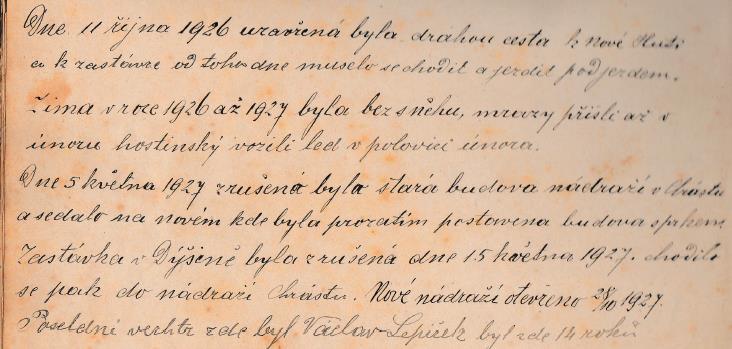 Dne 11 října 1926 uzavřená byla drahou cesta k Nové Huti
a k zastávce od toho dne muselo se chodit a jezdit podjezdem.
Zima v roce 1926 až 1927 byla bez sněhu, mrazy přišli až v
únoru hostinský vozili led v polovici února.
Dne 5 května 1927 zrušená byla stará budova nádraží v Chrástu
a sedalo na novém kde byla prozatím postavena budova s prken
Zastávka v Dýšině byla zrušená dne 15 května 1927. chodilo
se pak do nádraží Chrástu. Nové nádraží otevřeno 28/10 1927.
Poseldní verhtr zde byl Václav Lepiček byl zde 14 roků